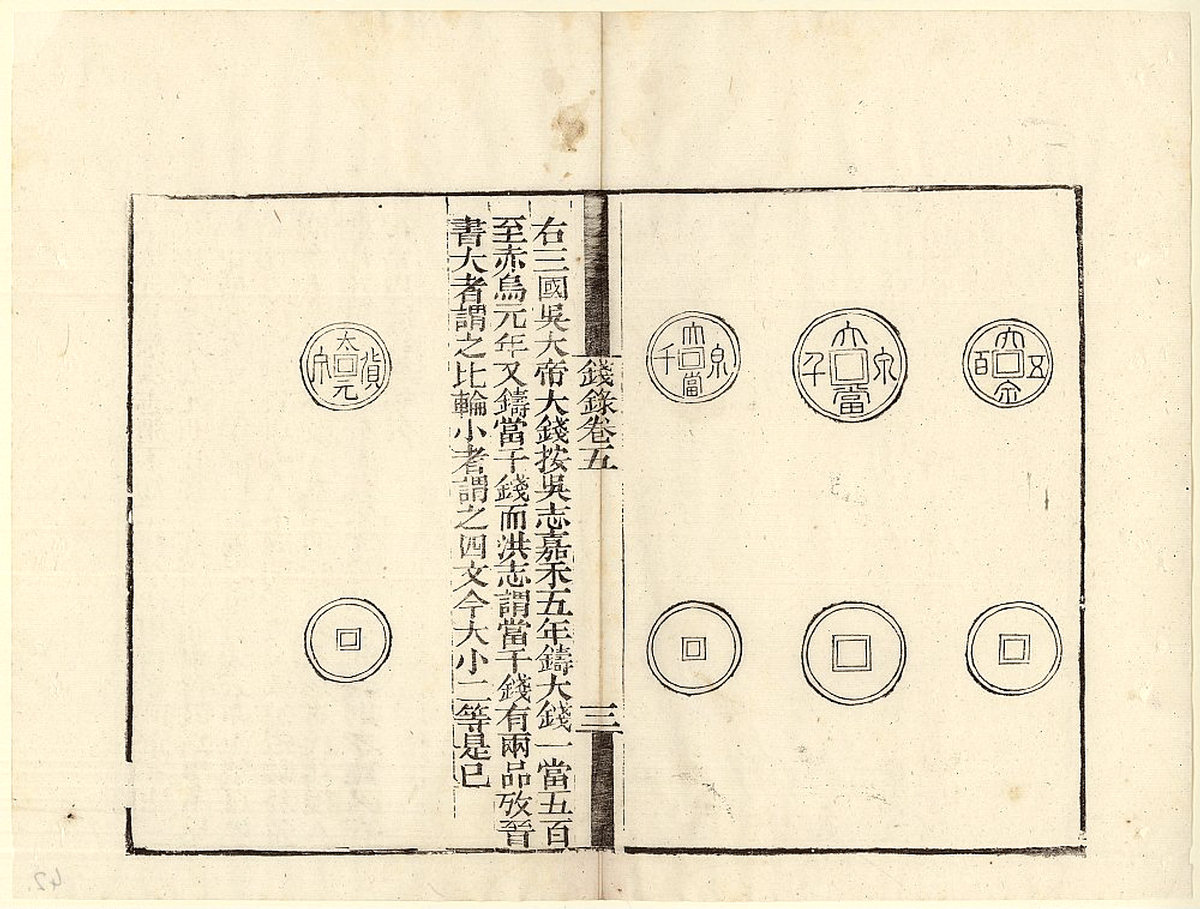 大泉五百
大泉當千
大泉當千
錢錄卷五
三
右三國吳大帝大錢按吳志嘉禾五年鑄大錢一當五百
至赤烏元年又鑄當千錢而洪志謂當千錢有兩品攷晉
書大者謂之比輪小者謂之四文今大小二等是已
太元貨泉
42.